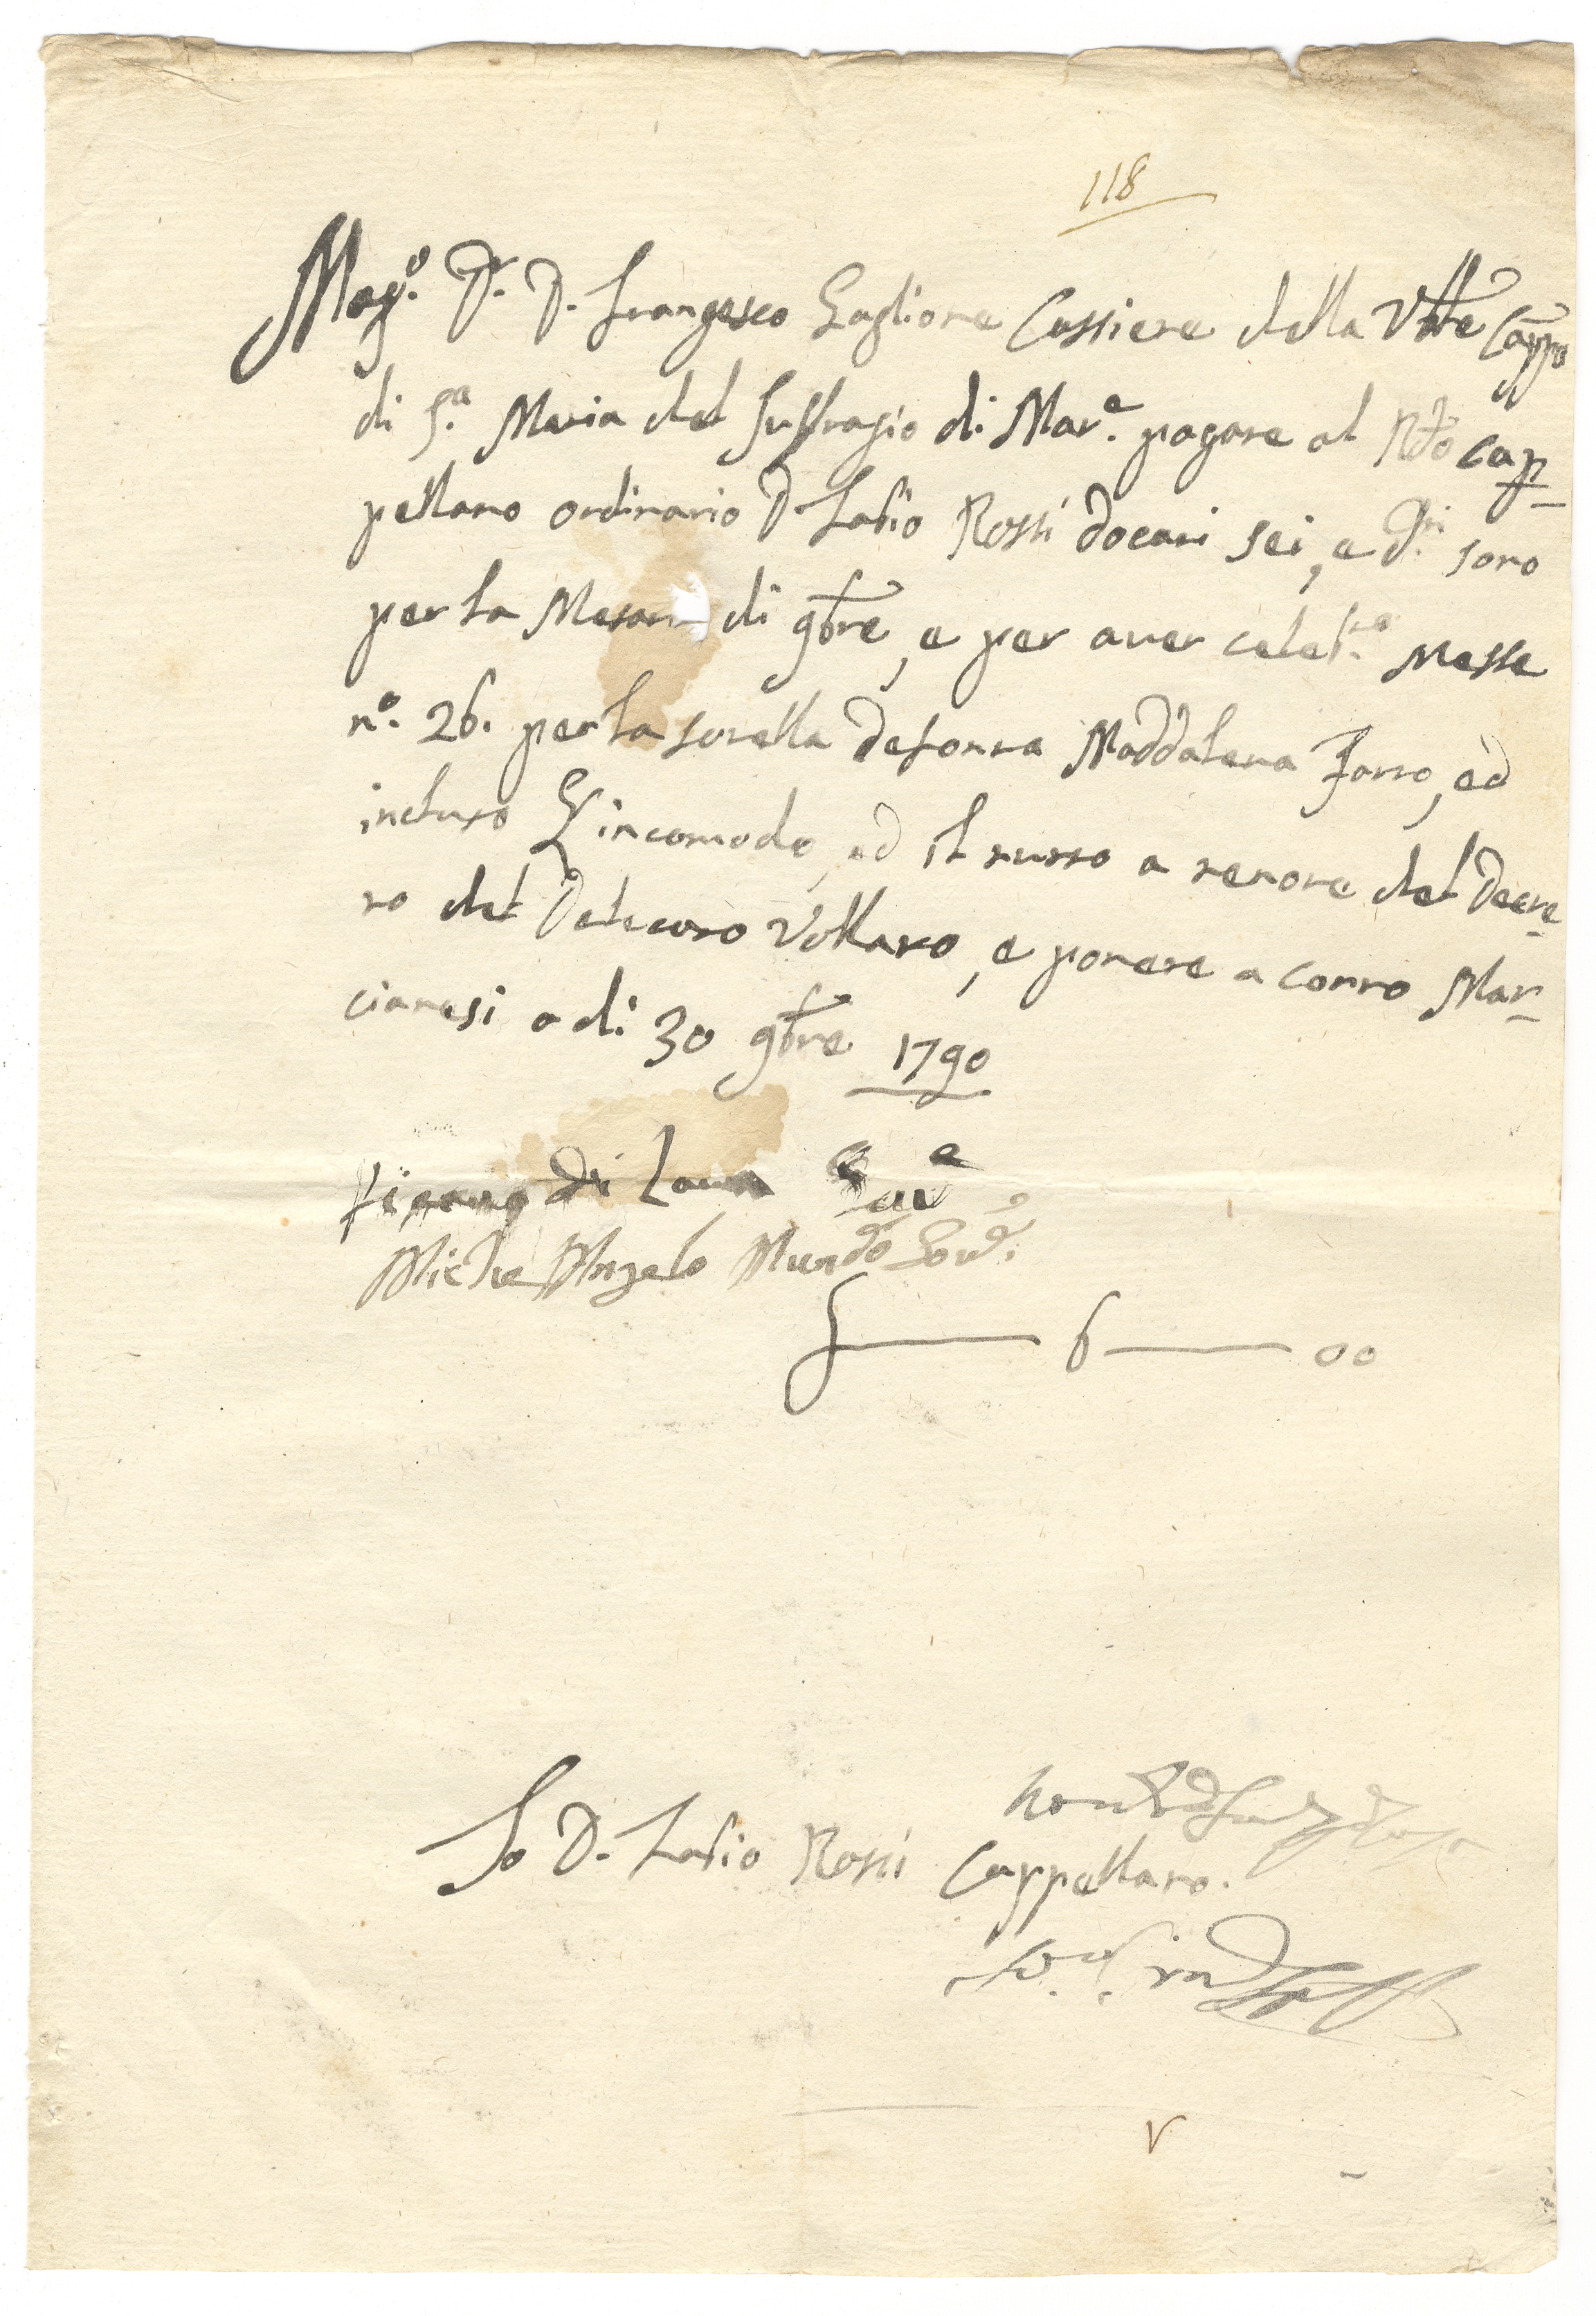 118
Mag.co D.r D. Francesco Gaglione Cassiere della Vble Capp.a
di S.a Maria del Suffragio di Mar.e pagate al Rdo Cap
pellano ordinario D. Fabio Rossi docati sei, e d.ti sono
per la Mesata di 9bre, e per aver celeb.te Messe
n.o 26. per la sorella defonta Maddalena Farro, ed
incluso l'incomodo, ed il tutto a tenore del Decre
to del Delecato Vollaro, e ponete a conto Mar
cianesi a di 30 9bre 1790
di
Michel'Angelo Mundo Gov.e
6 — 00
Io D. Fabio Rossi Cappellano.